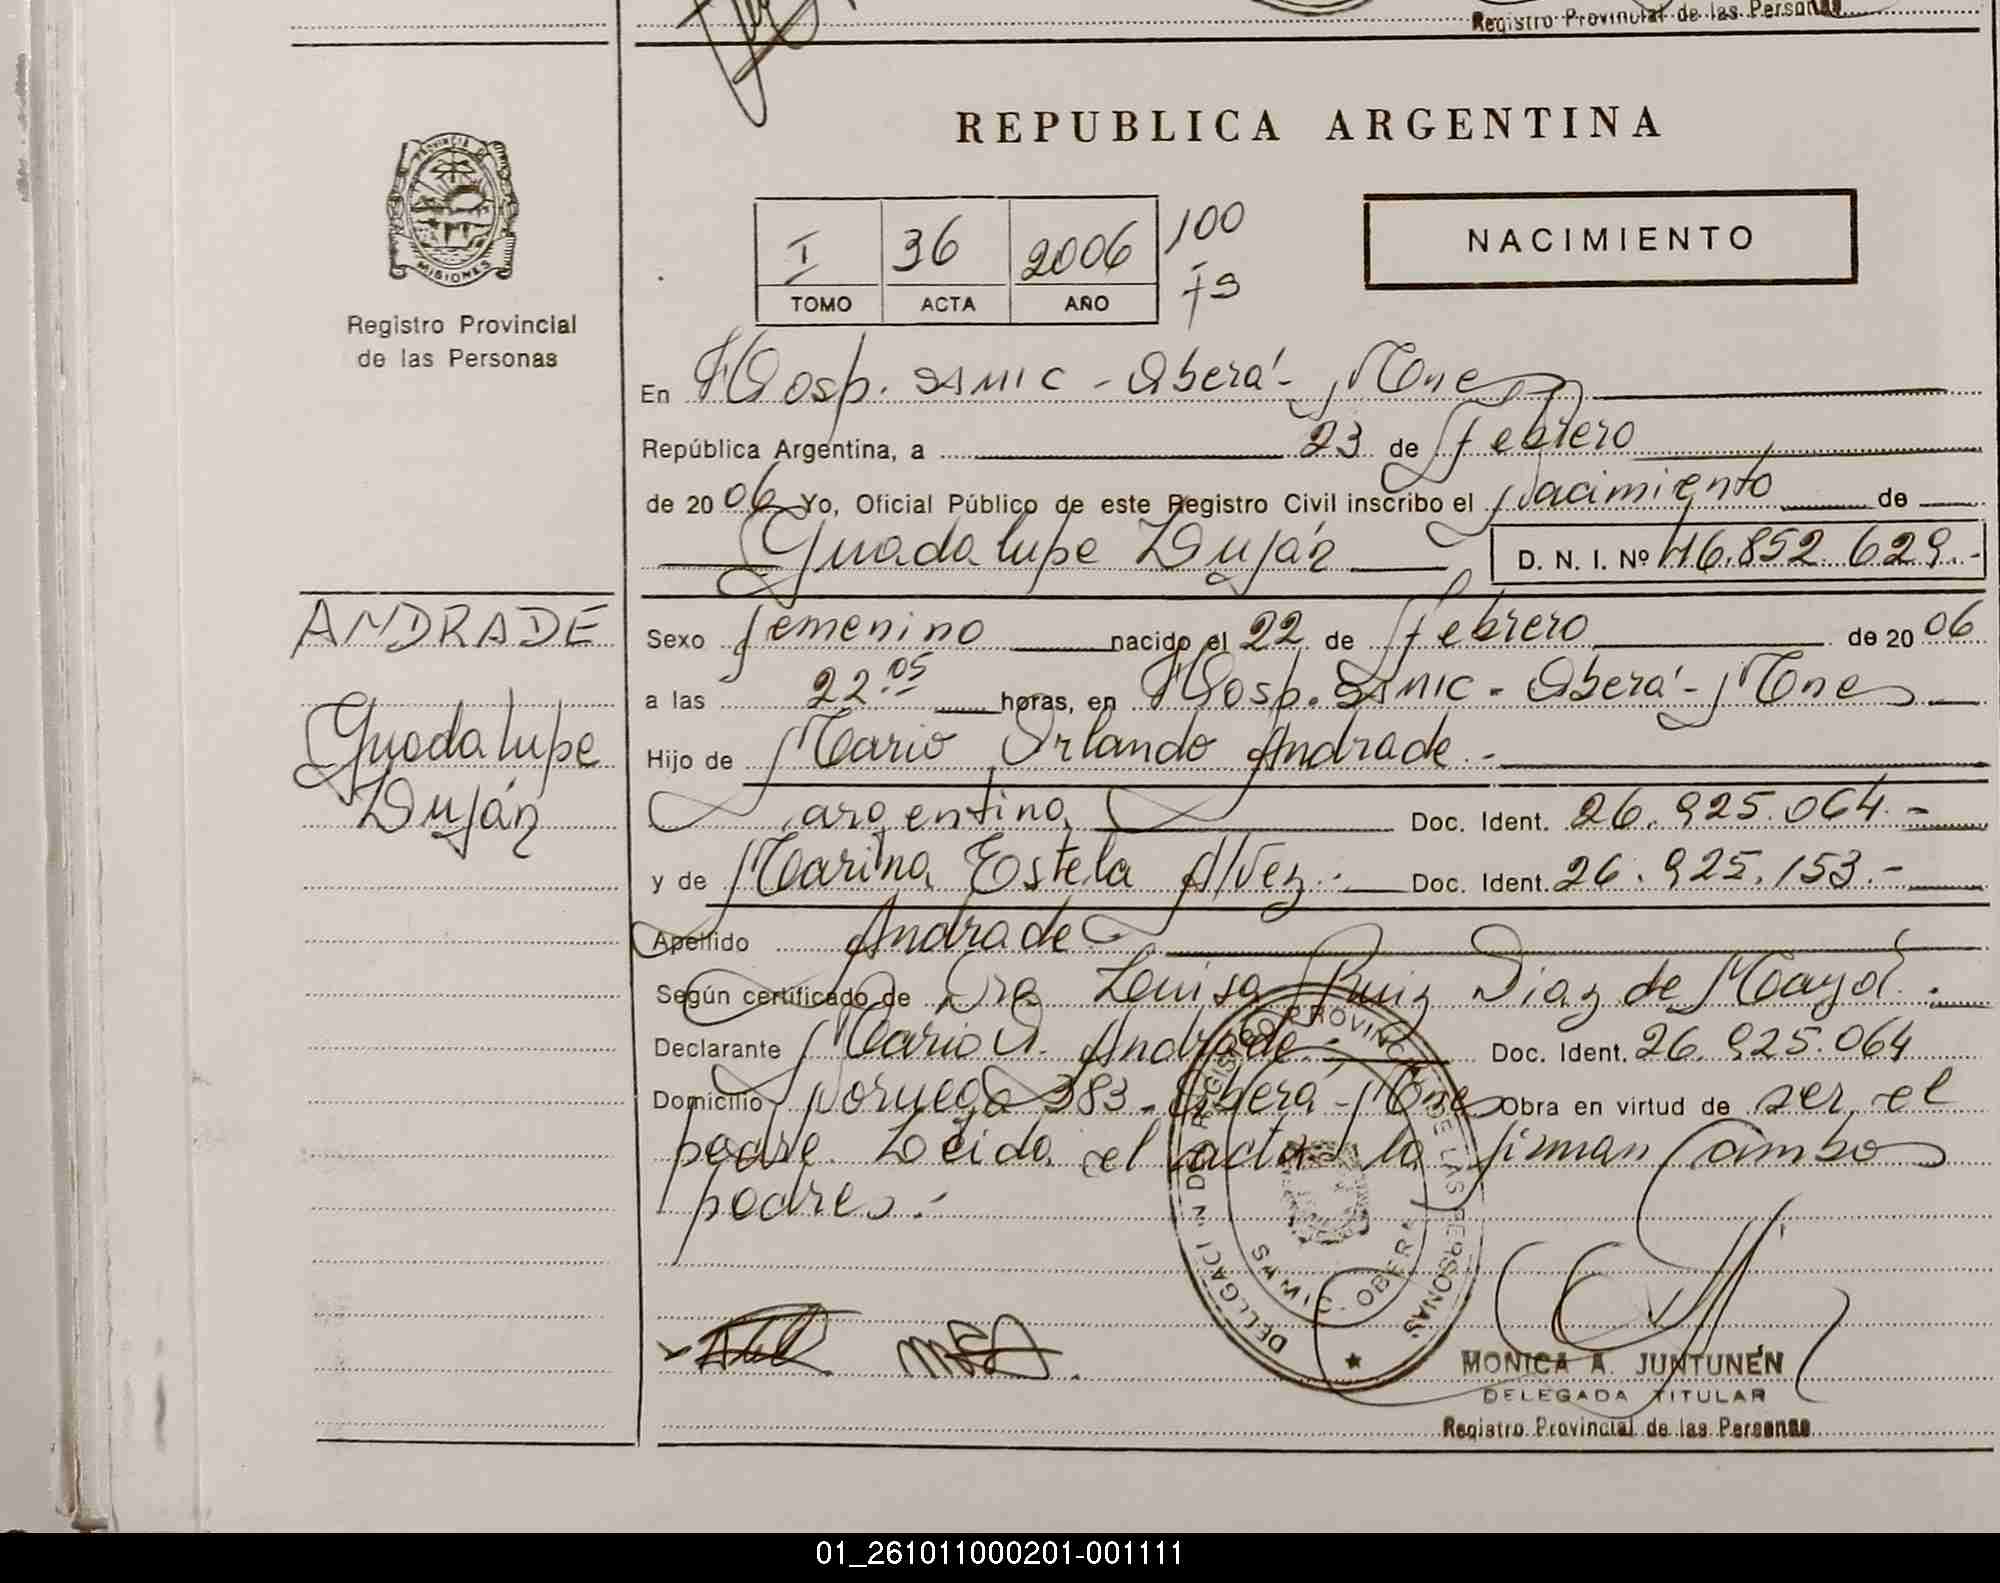 Registro Provincial de las Personas
REPUBLICA ARGENTINA
PROVINCIA DE
MISIONES
Registro Provincial
de las Personas
I 36 2006 100
TOMO ACTA AÑO fs
NACIMIENTO
En Hosp. SAMIC - Oberá - Mnes
República Argentina, a 23 de Febrero
de 2006 Yo, Oficial Público de este Registro Civil inscribo el Nacimiento de
Guadalupe Luján D. N. I. Nº 46.852.629.-
ANDRADE
Guadalupe
Luján
Sexo femenino nacido el 22 de febrero de 2006
a las 22.05 horas, en Hosp. SAMIC - Oberá - Mnes
Hijo de Mario Orlando Andrade.-
argentino, Doc. Ident. 26.925.064.-
y de Marina Estela Alvez.- Doc. Ident. 26.925.153.-
Apellido Andrade
Según certificado de Dra Luisa Ruiz Diaz de Mayol.
Declarante Mario O. Andrade.- Doc. Ident. 26.925.064
Domicilio Noruega 383 - Oberá - Mnes Obra en virtud de ser el
padre. Leida el acta la firman ambos
padres.-
REGISTRO PROVINCIAL DE LAS PERSONAS
SAMIC - OBERA
MONICA A. JUNTUNÉN
DELEGADA TITULAR
Registro Provincial de las Personas
01_261011000201-001111